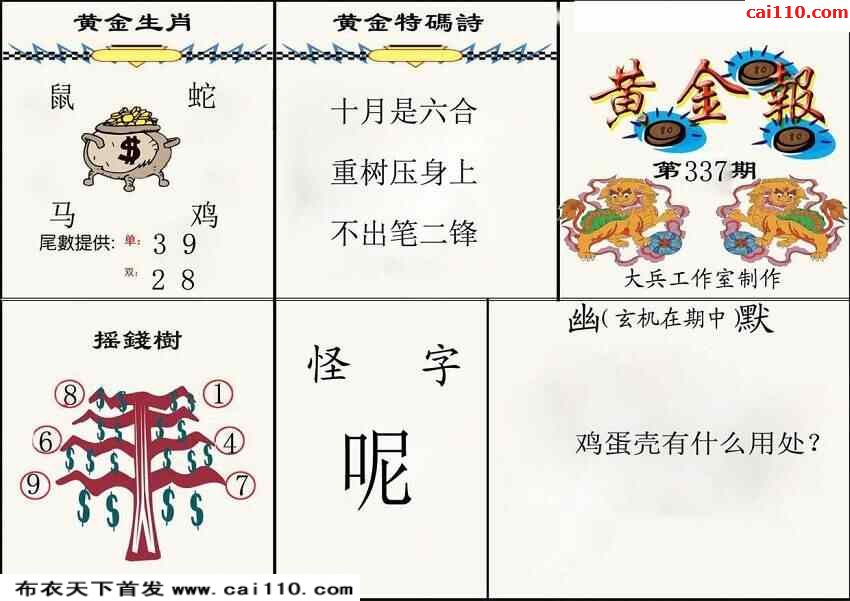 cai110.com
黄金生肖
鼠 蛇
$
马 鸡
尾數提供: 单: 3 9
双: 2 8
黄金特碼詩
十月是六合
重树压身上
不出笔二锋
黄金報
80
80
80
第337期
大兵工作室制作
摇錢樹
8 1
6 4
9 7
$ $ $ $
$ $ $ $
$ $ $ $
$ $ $ $
怪 字
呢
幽(玄机在期中)默
鸡蛋壳有什么用处?
布衣天下首发 www.cai110.com